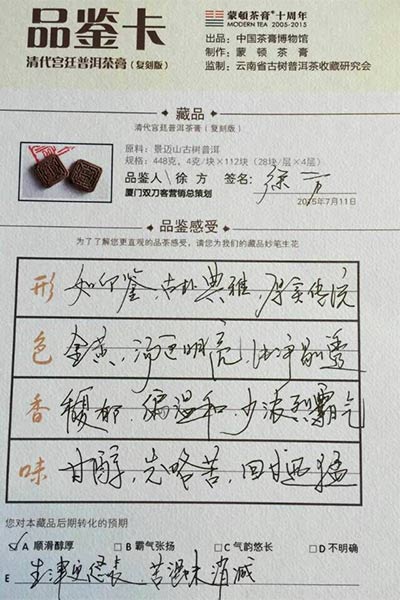 品鉴卡
清代宫廷普洱茶膏（复刻版）
蒙顿茶膏®十周年
MODERN TEA 2005-2015
出品：中国茶膏博物馆
制作：蒙顿茶膏
监制：云南省古树普洱茶收藏研究会
藏品
清代宫廷普洱茶膏（复刻版）
原料：景迈山古树普洱
规格：448克，4克/块×112块（28块/层×4层）
品鉴人\徐方 签名：徐方
厦门双刀客营销总策划
2015年7月11日
品鉴感受
为了了解您更直观的品茶感受，请您为我们的藏品妙笔生花
形 如印鉴，古朴典雅，厚实传统
色 金黄，汤色明亮，洁净剔透
香 馥郁，偏温和，少浓烈霸气
味 甘醇，先略苦，回甘迅猛
您对本藏品后期转化的预期
☑A 顺滑醇厚 □B 霸气张扬 □C 气韵悠长 □D 不明确
E 生津更悠长，苦涩味消减